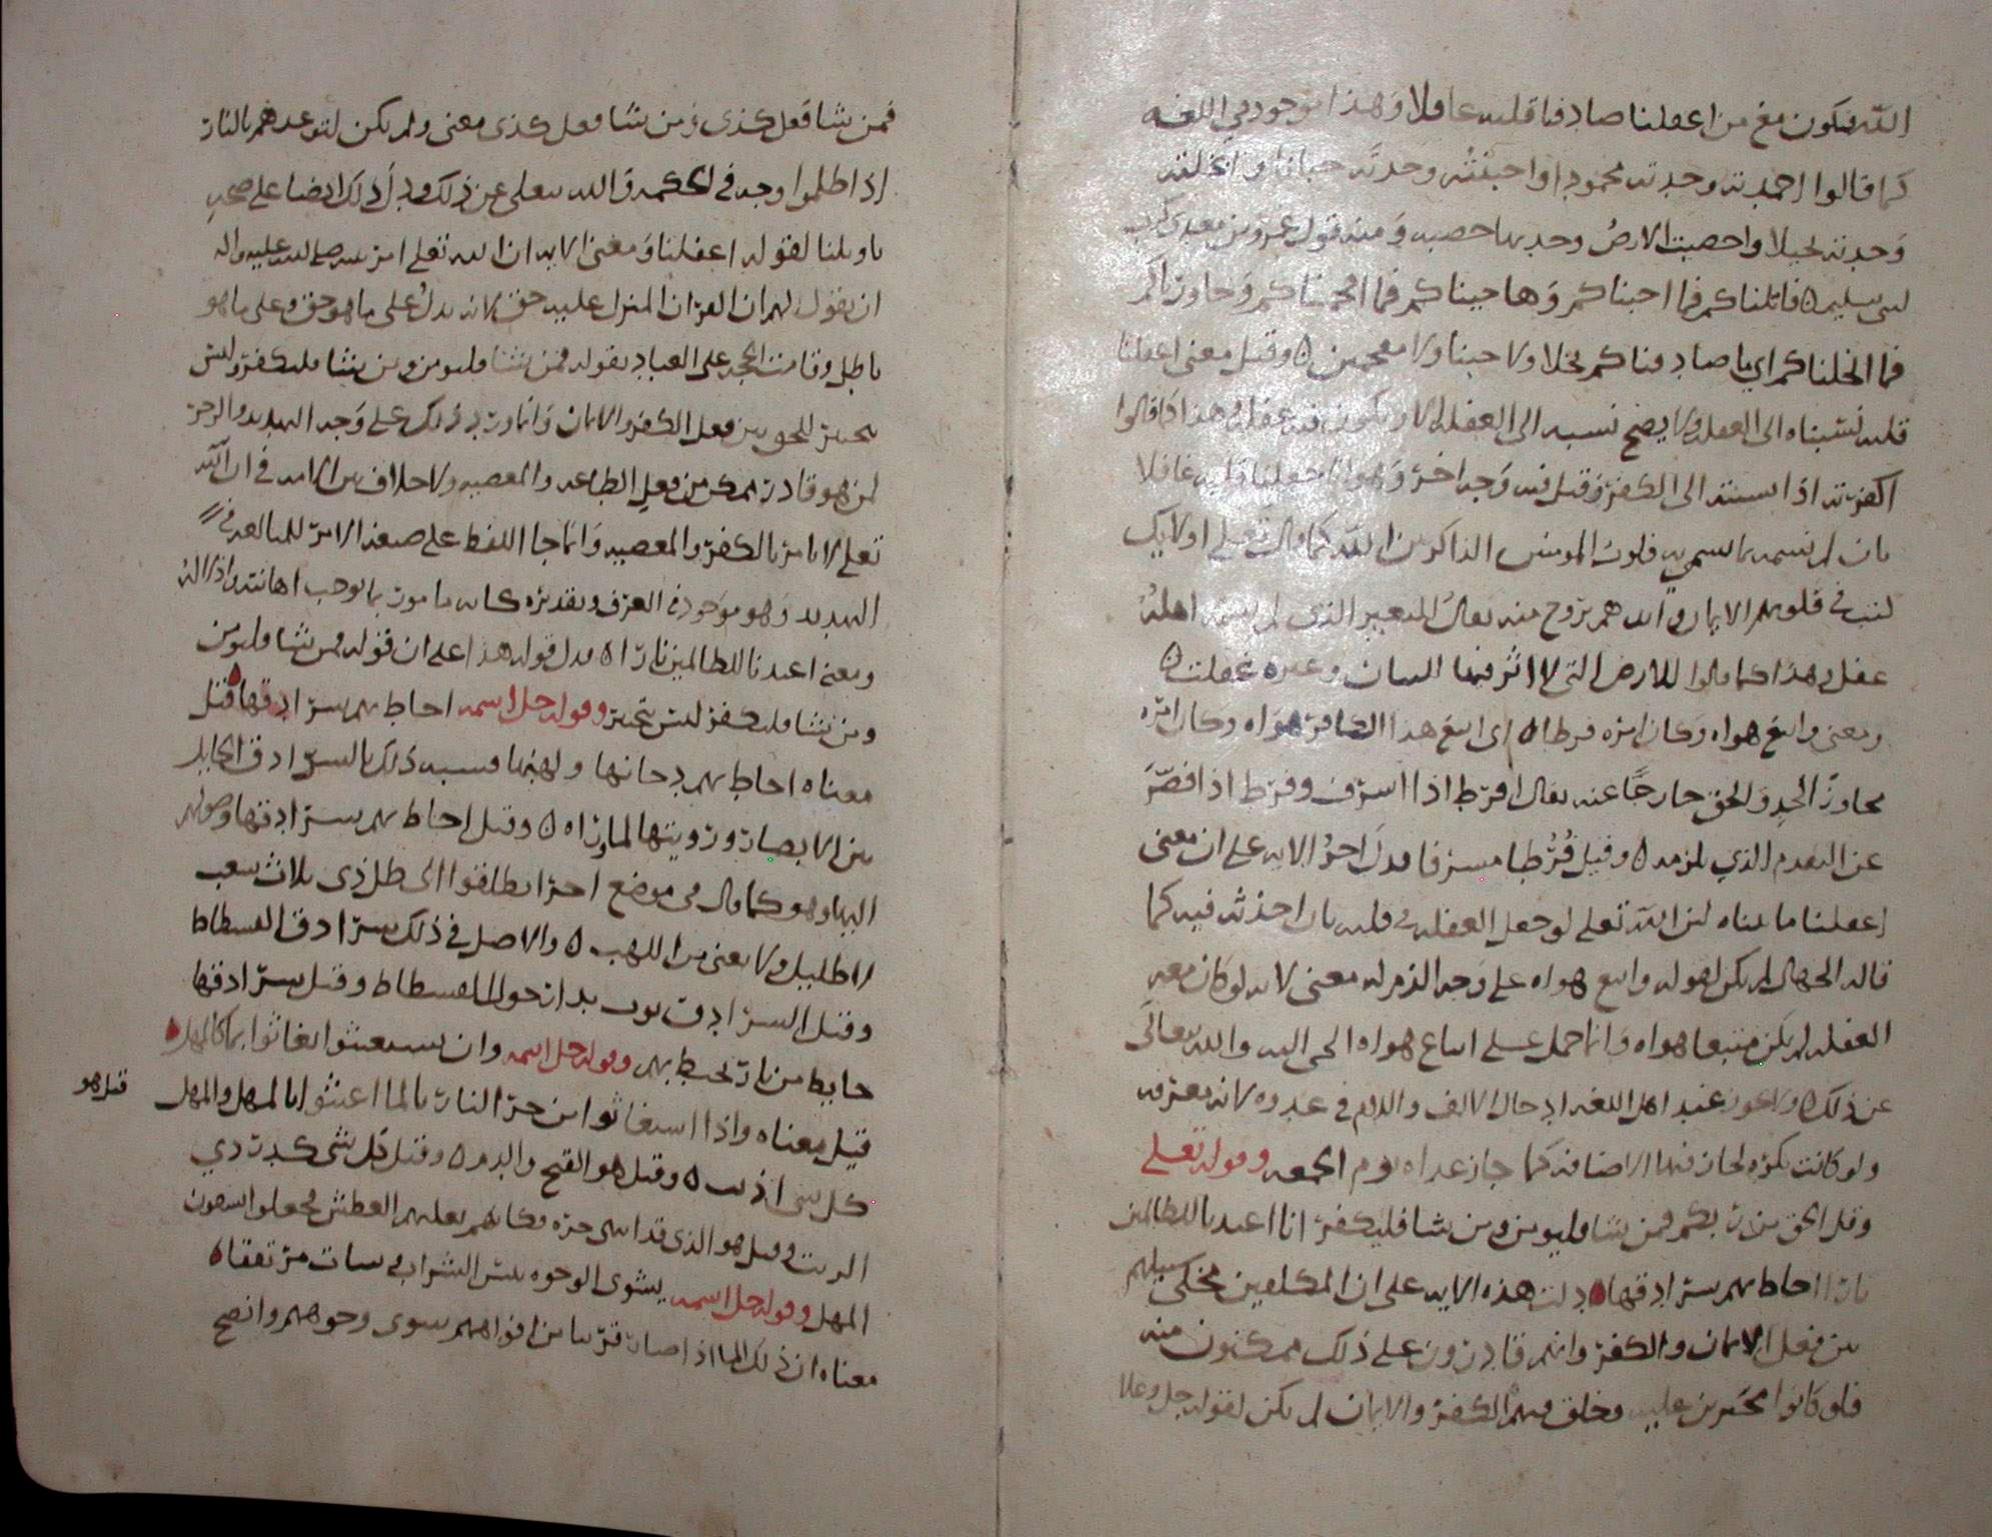 الله فيكون معنى من اغفلنا صادفنا قلبه غافلا وهذا موجود في اللغه
كما قالوا احمدته وجدته محمودا واجبنته وجدته جبانا وابخلته
وجدته بخيلا واخصبت الارض وجدتها خصبه ومنه قول عمرو بن معدي كرب
لبني سليم ٥ قاتلناكم فما اجبناكم وهاجيناكم فما افحمناكم وحاورناكم
فما ابخلناكم اي ما صادفناكم بخلا ولا جبنا ولا مفحمين ٥ وقيل معنى اغفلنا
قلبه نسبناه الى الغفله ولا يصح نسبه الى الغفله الا وتكون فيه غفله وهذا كما قالوا
اكفرته اذا نسبته الى الكفر وقيل فيه وجه اخر وهو انا جعلنا قلبه غافلا
بان لم نسمه بما نسم به قلوب المومنين الذاكرين الله كما قال تعلى اولايك
كتب في قلوبهم الايمان وايدهم بروح منه يقال للبعير الذي لم يسمه اهله
غفل وهذا كما قالوا للارض التي لا اثر فيها للبيان وغيره غفلت ٥
ومعنى واتبع هواه وكان امره فرطا ٥ اي اتبع هذا الكافر هواه وكان امره
مجاوزا لحد والحق خارجا عنه يقال افرط اذا اسرف وفرط اذا قصر
عن التقدم الذي يلزمه ٥ وقيل فرطا مسرفا فدل اخر الايه على ان معنى
اغفلنا ما قلناه لان الله تعلى لو جعل الغفله في قلبه بان احدثه فيه كما
قاله الجهال لم يكن لقوله واتبع هواه على وجه الذم له معنى لانه لو كان معه
الغفله لم يكن متبعا هواه وانما حمل على اتباع هواه الجي اليه والله يتعالى
عن ذلك ولا يجوز عند اهل اللغه ادخال الالف واللام في غدوه لانه معرفه
ولو كانت نكره لجاز فيها الاضافه كما جاز غداه يوم الجمعه وقوله تعلى
وقل الحق من ربكم فمن شا فليومن ومن شا فليكفر انا اعتدنا للظالمين
نارا احاط بهم سرادقها دلت هذه الايه على ان المكلفين مخلى سبيلهم
بين فعل الايمان والكفر وانهم قادرون على ذلك ممكنون منه
فلو كانوا مجبرين عليه وخلق فيهم الكفر والايمان لم يكن لقوله جل وعلا
فمن شا فعل كذى ومن شا فعل كذى معنى ولم يكن لتوعدهم بالنار
اذا ظلموا وجه في الحكمه والله يتعلى عن ذلك ودل ذلك ايضا على صحه
تاويلنا لقوله اغفلنا ومعنى الايه ان الله تعلى امر نبيه صلى الله عليه واله
ان يقول لهم ان القران المنزل عليه حق لانه يدل على ما هو حق وعلى ما هو
باطل وقامت الحجه على العباد بقوله فمن شا فليومن ومن شا فليكفر وليس
بتخيير للخلق بين فعل الكفر والايمان وانما ورد ذلك على وجه التهديد والزجر
لمن هو قادر متمكن من فعل الطاعه والمعصيه ولا خلاف بين الامه في ان الله
تعلى لا يامر بالكفر والمعصيه وانما جا اللفظ على صيغه الامر للمبالغه في
التهديد وهو موجود في العرف وتقديره كانه مامور بما يوجب اهانته واذلاله
ومعنى اعتدنا للظالمين نارا ٥ فدل قوله هذا على ان قوله فمن شا فليومن
ومن شا فليكفر ليس بتخيير وقوله جل اسمه احاط بهم سرادقها قيل
معناه احاط بهم دخانها ولهبها فشبه ذلك بالسرادق الحايل
بين الابصار ورويتها لما وراه ٥ وقيل احاط بهم سرادقها وصولهم
اليها وهو كما قال في موضع اخر انطلقوا الى ظل ذي ثلاث شعب
لا ظليل ولا يغني من اللهب ٥ والاصل في ذلك سرادق الفسطاط
وقيل السرادق ثوب يدار حول الفسطاط وقيل سرادقها
حايط من نار تحيط بهم وقوله جل اسمه وان يستغيثوا يغاثوا بما كالمهل
قيل معناه واذا استغاثوا من حر النار بالما اغيثوا بالمهل والمهل
قيل هو
كل شي اذيب ٥ وقيل هو القيح والدم ٥ وقيل كل شي كدردي
الزيت وقيل هو الذي قد انتهى حره فكانهم يعلمهم العطش فجعلوا يسقون
المهل وقوله جل اسمه يشوى الوجوه بيس الشراب وسات مرتفقا ٥
معناه ان ذلك الما اذا صار قريبا من افواههم شوى وجوههم وانضج